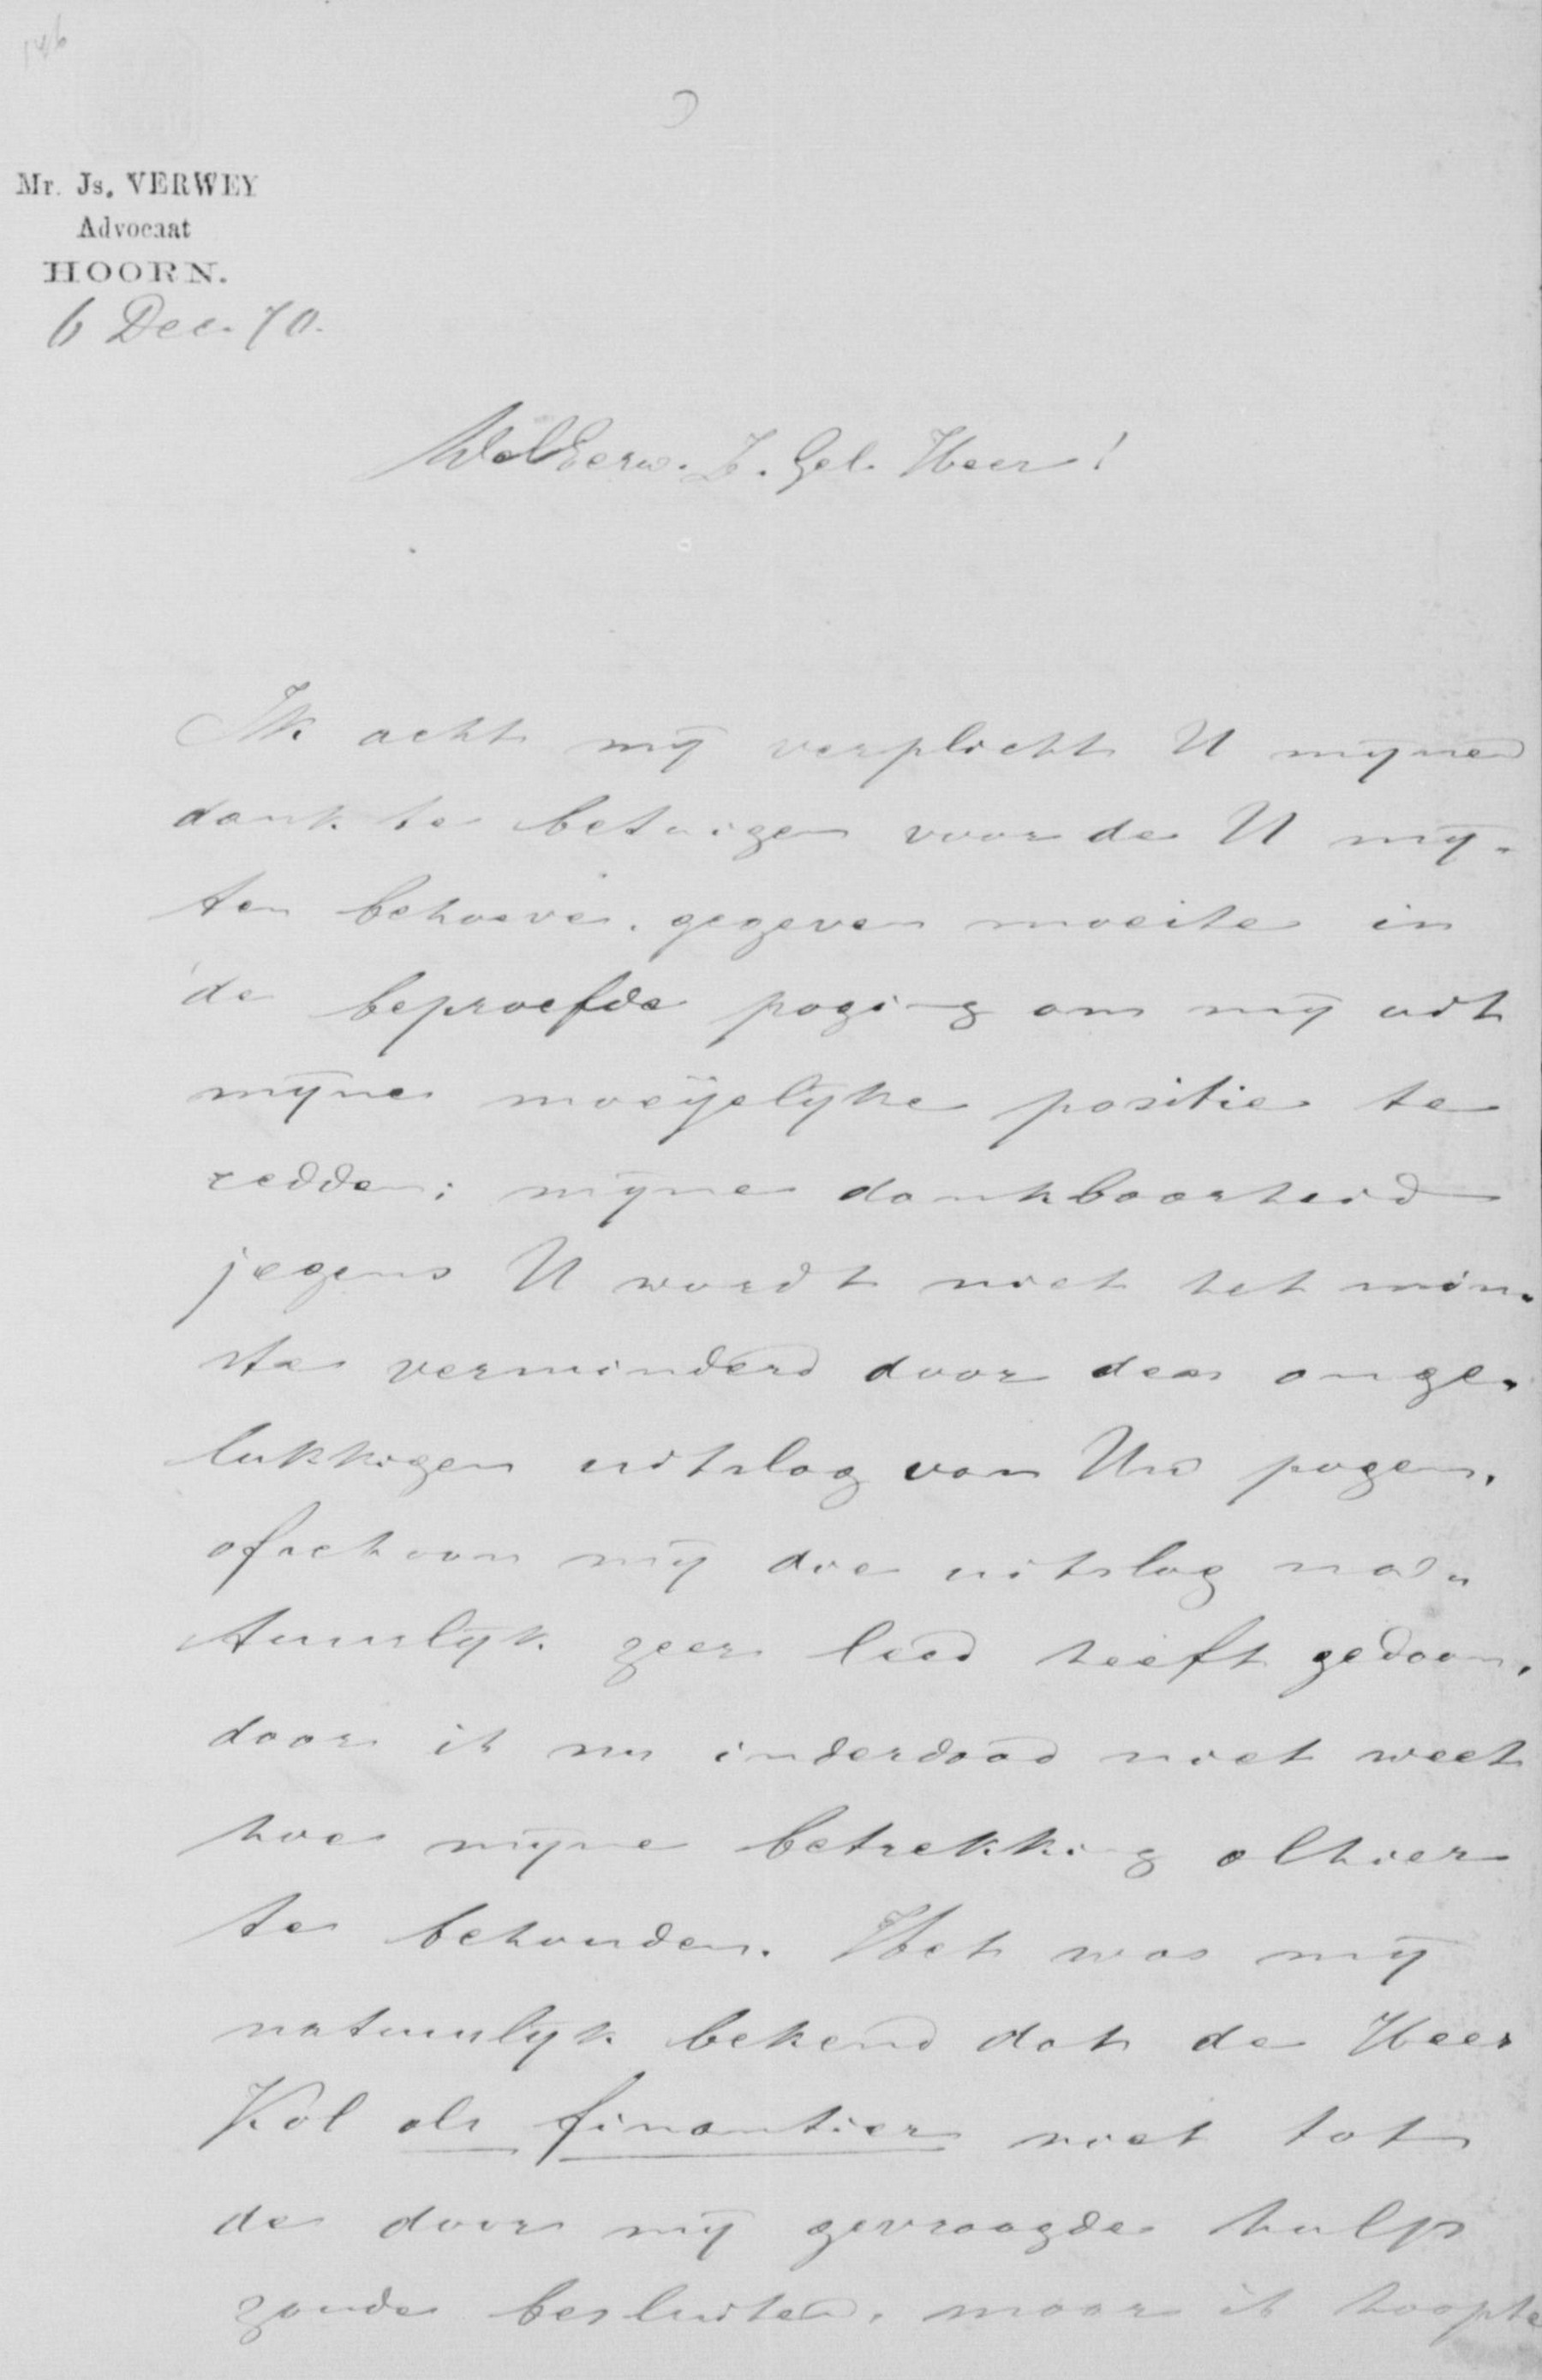 146
Mr. Js. VERWEY
Advocaat
HOORN.
6 Dec. 70.
WelEerw. Z. Gel. Heer!
Ik acht mij verplicht U mijnen
dank te betuigen voor de U mij-
ten behoeve. gegeven moeite in
de beproefde poging om mij uit
mijne moeijelijke positie te
redden; mijne dankbaarheid
jegens U wordt niet het min-
ste verminderd door den onge-
lukkigen uitslag van Uw pogen,
ofschoon mij die uitslag na-
tuurlijk zeer leed heeft gedaan,
daar ik nu inderdaad niet weet
hoe mijne betrekking alhier
te behouden. Het was mij
natuurlijk bekend dat de Heer
Kol als finantier niet tot
de door mij gevraagde hulp
zoude besluiten, maar ik hoopte